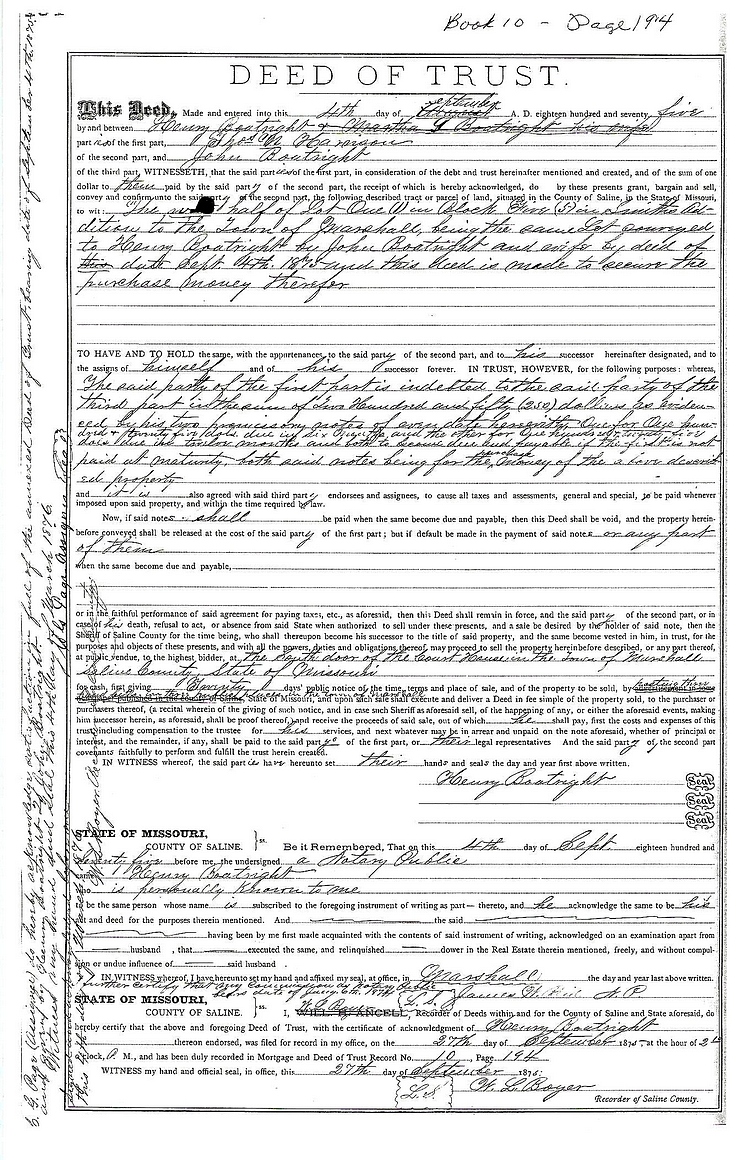 Book 10 - Page 194
DEED OF TRUST.
This Deed, Made and entered into this 4th day of September A. D. eighteen hundred and seventy five
by and between Henry Boatright & Martha Boatright his wife
part of the first part, Thos. W. Harrison
of the second part, and John Boatright
of the third part, WITNESSETH, that the said part of the first part, in consideration of the debt and trust hereinafter mentioned and created, and of the sum of one
dollar to them paid by the said party of the second part, the receipt of which is hereby acknowledged, do by these presents grant, bargain and sell,
convey and confirm unto the said party of the second part, the following described tract or parcel of land, situated in the County of Saline, in the State of Missouri,
to wit: The half of Lot One (1) in Block in Smith's Ad-
dition to the Town of Marshall, being the same Lot conveyed
to Henry Boatright by John Boatright and wife by deed of
this date Sept. 4th. 1875 and this deed is made to secure the
purchase money therefor
TO HAVE AND TO HOLD the same, with the appurtenances, to the said party of the second part, and to his successor hereinafter designated, and to
the assigns of himself and of his successor forever. IN TRUST, HOWEVER, for the following purposes: whereas,
The said party of the first part is indebted to the said party of the
third part in the sum of Two Hundred and fifty (250) dollars as eviden-
ced by his two promissory notes of even date herewith. One for One hun-
dred & twenty five dols. due in six months, and the other for One hundred & twenty five
dols due twelve months and both to become due and payable if the first is not
paid at maturity, both said notes being for the purchase money of the above describ-
ed property
and it is also agreed with said third party endorses and assignees, to cause all taxes and assessments, general and special, to be paid whenever
imposed upon said property, and within the time required by law.
Now, if said notes shall be paid when the same become due and payable, then this Deed shall be void, and the property herein-
before conveyed shall be released at the cost of the said party of the first part; but if default be made in the payment of said notes or any part
of them
when the same become due and payable,
or in the faithful performance of said agreement for paying taxes, etc., as aforesaid, then this Deed shall remain in force, and the said party of the second part, or in
case of his death, refusal to act, or absence from said State when authorized to sell under these presents, and a sale be desired by the holder of said note, then the
Sheriff of Saline County for the time being, who shall thereupon become his successor to the title of said property, and the same become vested in him, in trust, for the
purposes and objects of these presents, and with all the powers, duties and obligations thereof, may proceed to sell the property hereinbefore described, or any part thereof,
at public vendue, to the highest bidder, at the South door of the Court House in the Town of Marshall
Saline County State of Missouri
for cash, first giving Twenty days' public notice of the time, terms and place of sale, and of the property to be sold, by
State of Missouri, and upon such sale shall execute and deliver a Deed in fee simple of the property sold, to the purchaser or
purchasers thereof, (a recital wherein of the giving of such notice, and in case such Sheriff as aforesaid sell, of the happening of any, or either the aforesaid events, making
him successor herein, as aforesaid, shall be proof thereof,) and receive the proceeds of said sale, out of which he shall pay, first the costs and expenses of this
trust including compensation to the trustee for his services, and next whatever may be in arrear and unpaid on the note aforesaid, whether of principal or
interest, and the remainder, if any, shall be paid to the said part of the first part, or their legal representatives And the said party of the second part
covenants faithfully to perform and fulfill the trust herein created.
IN WITNESS whereof, the said part have hereunto set their hands and seals the day and year first above written.
Henry Boatright
STATE OF MISSOURI,
COUNTY OF SALINE. ss. Be it Remembered, That on this 4th day of Sept eighteen hundred and
Seventy five before me, the undersigned a Notary Public
came Henry Boatright
who is personally known to me
be the same person whose name is subscribed to the foregoing instrument of writing as part thereto, and he acknowledge the same to be his
act and deed for the purposes therein mentioned. And the said
having been by me first made acquainted with the contents of said instrument of writing, acknowledged on an examination apart from
husband, that executed the same, and relinquished dower in the Real Estate therein mentioned, freely, and without compul-
sion or undue influence of said husband
IN WITNESS whereof, I have hereunto set my hand and affixed my seal, at office, in Marshall the day and year last above written.
further certify that my commission as Notary Public
L.S. James N. P.
STATE OF MISSOURI,
COUNTY OF SALINE. ss. I, Recorder of Deeds within and for the County of Saline aforesaid, do
hereby certify that the above and foregoing Deed of Trust, with the certificate of acknowledgment of Henry Boatright
thereon endorsed, was filed for record in my office, on the 27th day of September 1875 at the hour of 2
o'clock, P M., and has been duly recorded in Mortgage and Deed of Trust Record No. 10, Page 194
WITNESS my hand and official seal, in office, this 27th day of September 1875:
L.S. W. L. Boyer
Recorder of Saline County.